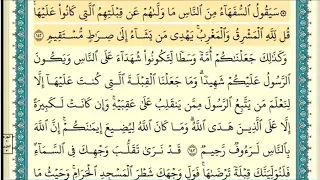 ۞ سَيَقُولُ السُّفَهَاءُ مِنَ النَّاسِ مَا وَلَّىٰهُمْ عَن قِبْلَتِهِمُ الَّتِي كَانُوا عَلَيْهَا
قُل لِّلَّهِ الْمَشْرِقُ وَالْمَغْرِبُ يَهْدِي مَن يَشَاءُ إِلَىٰ صِرَٰطٍ مُّسْتَقِيمٍ ١٤٢
وَكَذَٰلِكَ جَعَلْنَٰكُمْ أُمَّةً وَسَطًا لِّتَكُونُوا شُهَدَاءَ عَلَى النَّاسِ وَيَكُونَ
الرَّسُولُ عَلَيْكُمْ شَهِيدًا وَمَا جَعَلْنَا الْقِبْلَةَ الَّتِي كُنتَ عَلَيْهَا إِلَّا
لِنَعْلَمَ مَن يَتَّبِعُ الرَّسُولَ مِمَّن يَنقَلِبُ عَلَىٰ عَقِبَيْهِ وَإِن كَانَتْ لَكَبِيرَةً
إِلَّا عَلَى الَّذِينَ هَدَى اللَّهُ وَمَا كَانَ اللَّهُ لِيُضِيعَ إِيمَٰنَكُمْ إِنَّ اللَّهَ
بِالنَّاسِ لَرَءُوفٌ رَّحِيمٌ ١٤٣ قَدْ نَرَىٰ تَقَلُّبَ وَجْهِكَ فِي السَّمَاءِ
فَلَنُوَلِّيَنَّكَ قِبْلَةً تَرْضَىٰهَا فَوَلِّ وَجْهَكَ شَطْرَ الْمَسْجِدِ الْحَرَامِ وَحَيْثُ مَا